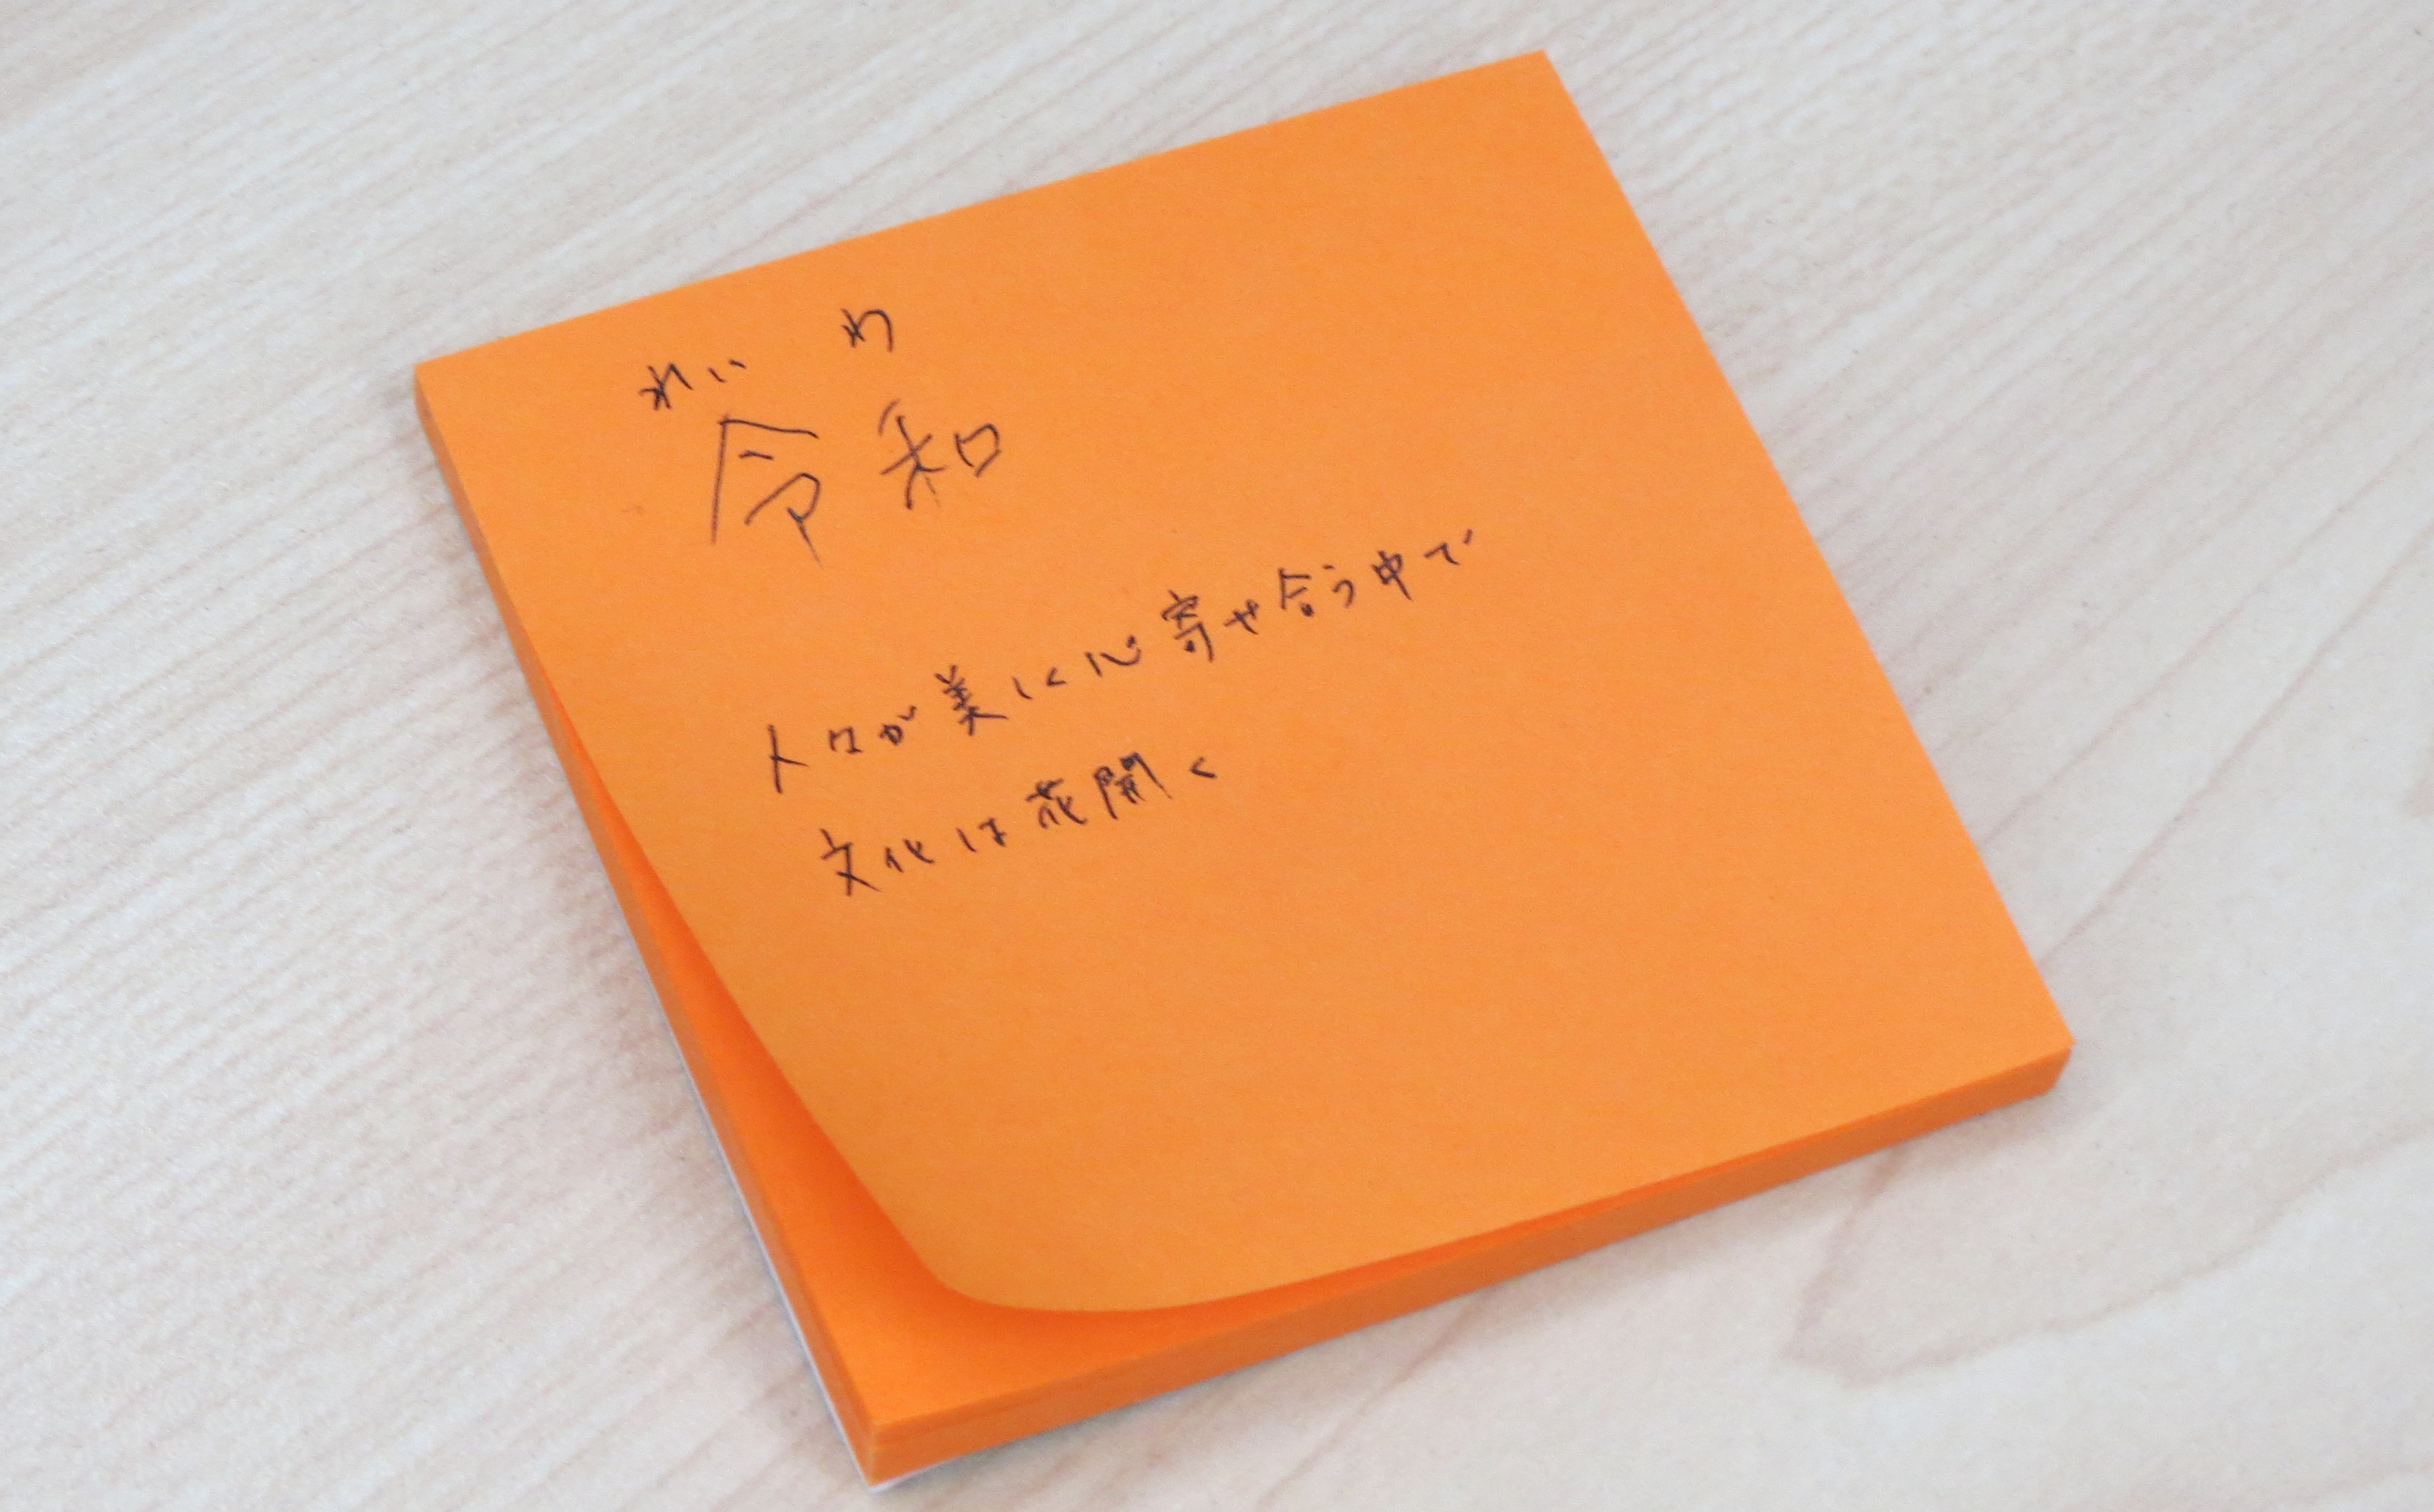 れいわ
令和
人々が美しく心寄せ合う中で
文化は花開く